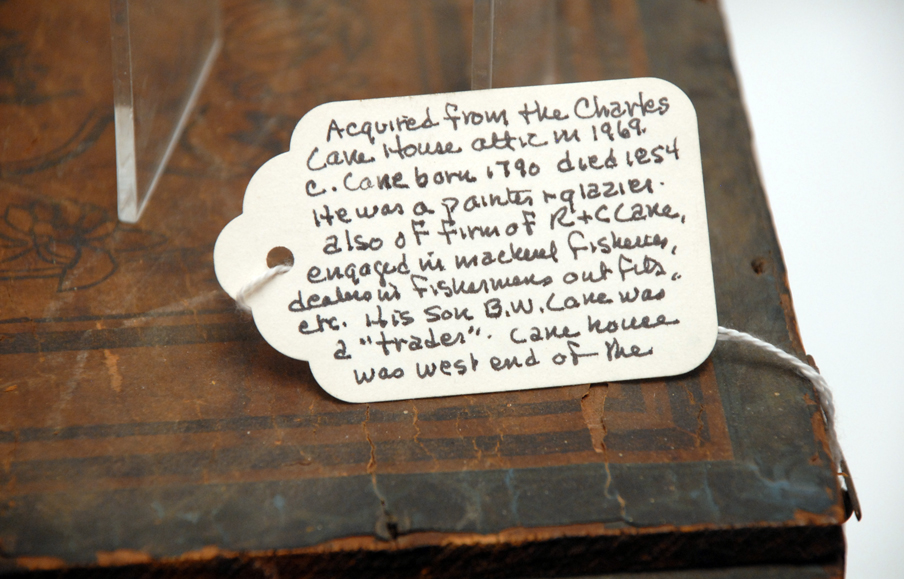 Acquired from the Charles
Cane House attic in 1969.
C. Cane born 1790 died 1854
He was a painter + glazier.
also of firm of R + C Cane,
engaged in mackerel fisheries,
dealers in fishermens out fits,
etc. His son B.W. Cane was
a "trader". Cane house
was west end of the